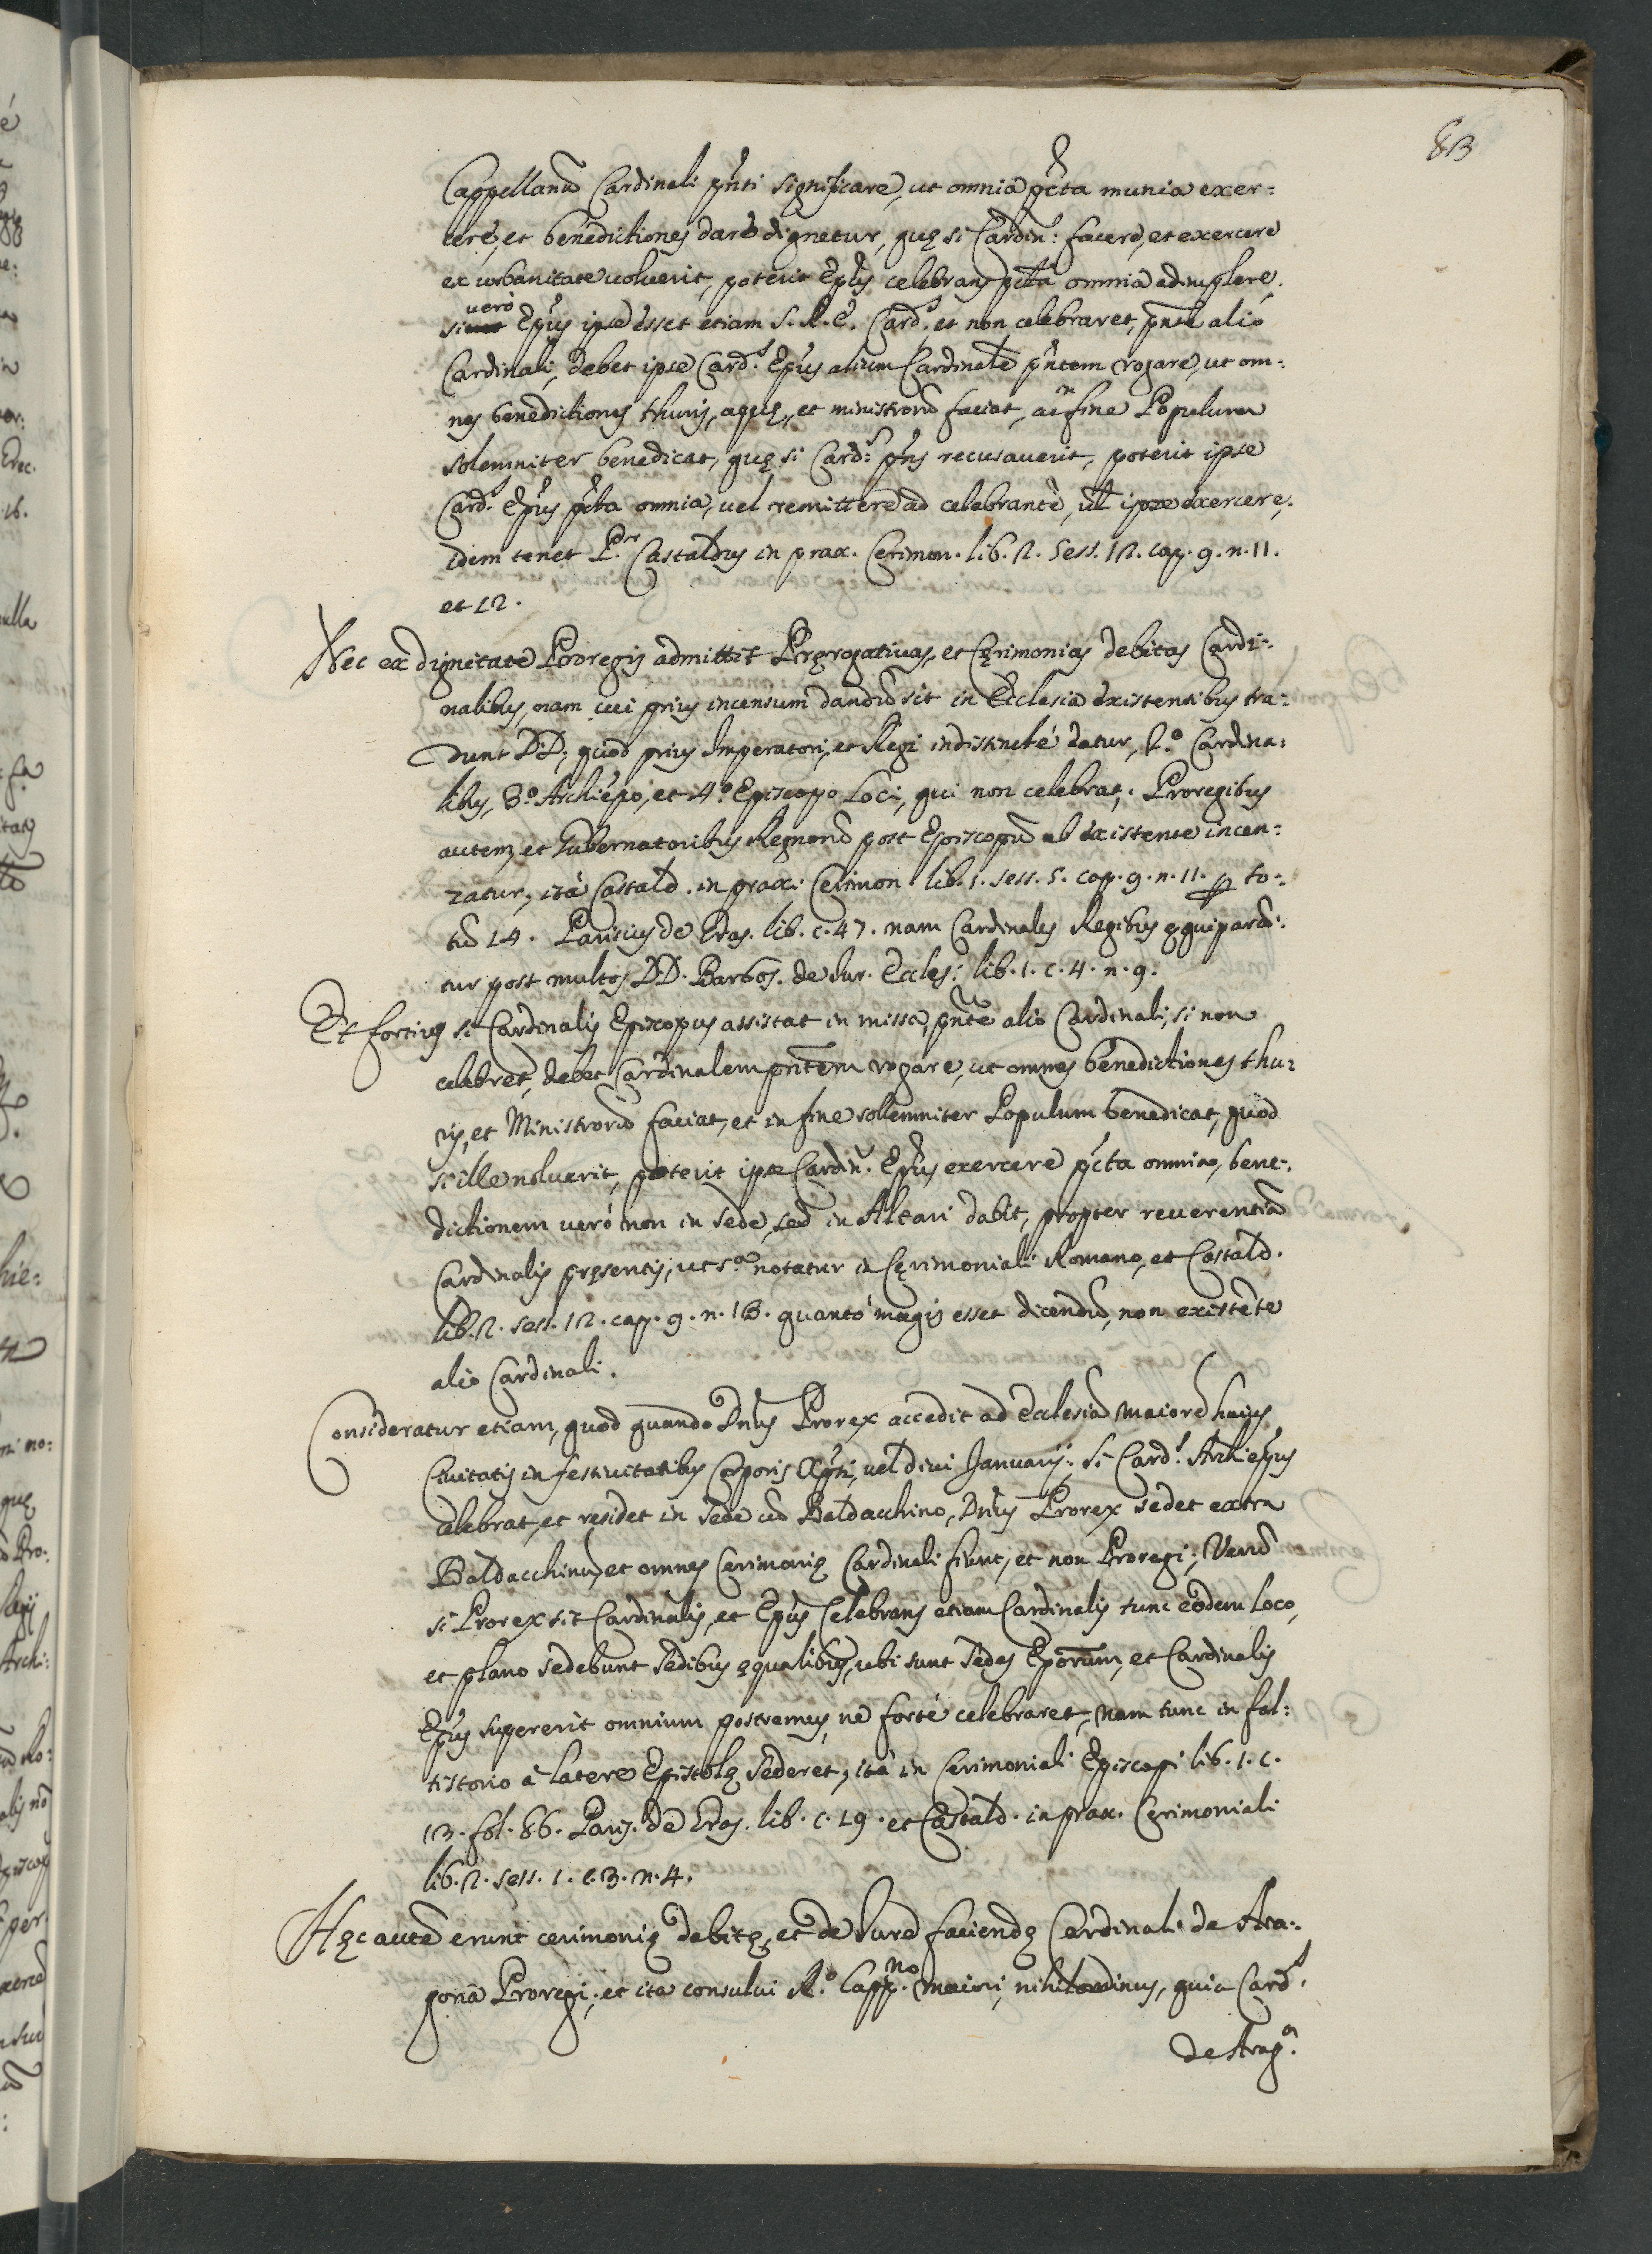 83
Cappellanũ Cardinali pñti significare, ut omnia pćta munia exer:
cere, et benedictiones dare dignetur, quę si Cardin: facere, et exercere
ex urbanitate noluerit, poterit Epũs celebrans pćta omnia adimplere,
si verò Epũs ipse esset etiam S. R. E. Card.l et non celebraret, pñte alio
Cardinali, debet ipse Card.l Epũs alium Cardinalẽ pñtem rogare, ut om:
nes benedictiones thuris, aquę, et ministrorũ faciat, ac in fine Populum
solemniter benedicat, quę si Card:l pñs recusaverit, poterit ipse
Card.l Epũs pćta omnia, vel remittere ad celebrantẽ, ul̃ ipse exercere,
idem tenet P.r Castaldus in prax. Cerimon. lib. 2. Sess. 12. cap. 9. n. 11.
et 12.
Nec ex dignitate Proregis admittit Prerogativas, et Cęrimonias debitas Cardi:
nalibus, nam cui prius incensum dandũ sit in Ecclesia existentibus tra:
dunt DD; quòd prius Imperatori, et Regi indistinctè datur, 2.º Cardina:
libus, 3.º Archiepõ, et 4.º Episcopo Loci, qui non celebrat. Proregibus
autem, et Gubernatoribus Regnorũ post Episcopũ ab existente incen:
zatur, ità Castald. in prax. Cerimon. lib. 1. sess. 5. cap. 9. n. 11. ꝑ to:
tũ 14. Parisius de Eras. lib. c. 47. nam Cardinales Regibus ęquiparã:
tur post multos DD. Barbos. de Iur. Eccles: lib. 1. c. 4. n. 9.
Et fortius si Cardinalis Episcopus assistat in missa, pñte alio Cardinali, si non
celebret, debet Cardinalem pñtem rogare, ut omnes benedictiones thu:
ris, et Ministrorũ faciat, et in fine sollemniter Populum benedicat, quod
si ille noluerit, poterit ipse Cardin.l Epũs exercere pćta omnia, bene:
dictionem verò non in sede, sed in Altari dabit, propter reverentiã
Cardinalis pręsentis, ut s.ª notatur in Cęrimoniali Romano, et Castald.
lib. 2. sess. 12. cap. 9. n. 13. quantò magis esset dicendũ, non existẽte
alio Cardinali.
Consideratur etiam, quod quando Dñus Prorex accedit ad Ecclesiã maiorẽ huius
Civitatis in festivitatibus Corporis Xp̃ti, vel divi Januarij: si Card.l Archiepũs
celebrat, et residet in sede cũ Baldacchino, Dñus Prorex sedet extra
Baldacchinũ, et omnes Cerimonię Cardinali fiunt, et non Proregi; Verũ
si Prorex sit Cardinalis, et Epũs Celebrans etiam Cardinalis tunc eodem loco,
et plano sedebunt sedibus ęqualibus, ubi sunt sedes Epõrum, et Cardinalis
Epũs supererit omnium postremus, ne fortè celebraret, nam tunc in fal:
tistorio à latere Epistolę sederet, ità in Cerimoniali Episcopi lib. 1. c.
13. fol. 86. Paris. de Eras. lib. c. 19. et Castald. in prax. Cęrimoniali
lib. 2. sess. 1. c. 3. n. 4.
Hęc autẽ erunt cerimonię debitę, et de Iure faciendę Cardinali de Ara:
gonã Proregi; et ita consului R.º Capp.no maiori, nihilominus, quia Card.l
de Arag.ª